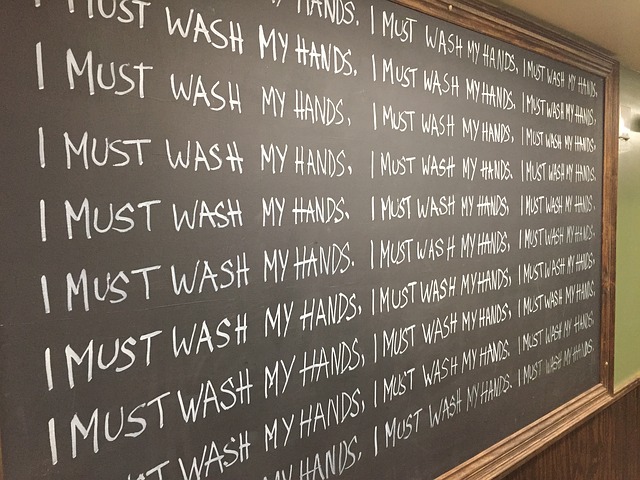 MY HANDS. I MUST WASH MY HANDS, I MUST WASH MY HANDS,
I MUST WASH MY HANDS. I MUST WASH MY HANDS, I MUST WASH MY HANDS,
I MUST WASH MY HANDS, I MUST WASH MY HANDS, I MUST WASH MY HANDS,
I MUST WASH MY HANDS, I MUST WASH MY HANDS. I MUST WASH MY HANDS.
I MUST WASH MY HANDS. I MUST WASH MY HANDS, I MUST WASH MY HANDS.
I MUST WASH MY HANDS. I MUST WASH MY HANDS, I MUST WASH MY HANDS.
I MUST WASH MY HANDS, I MUST WASH MY HANDS, I MUST WASH MY HANDS.
I MUST WASH MY HANDS, I MUST WASH MY HANDS, I MUST WASH MY HANDS,
WASH MY HANDS, I MUST WASH MY HANDS. I MUST WASH MY HANDS.
MY HANDS, I MUST WASH MY HANDS. I MUST WASH MY HANDS.